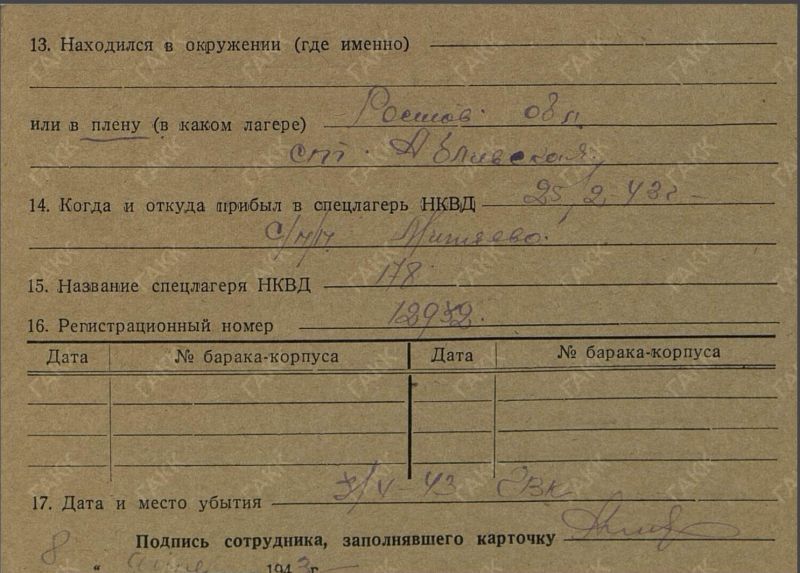 13. Находился в окружении (где именно)
или в плену (в каком лагере) Ростов. обл
ст.
14. Когда и откуда прибыл в спецлагерь НКВД 25/2 43г
с/п/п
15. Название спецлагеря НКВД 178
16. Регистрационный номер 12932.
Дата № барака-корпуса Дата № барака-корпуса
17. Дата и место убытия 43 РВК
Подпись сотрудника, заполнявшего карточку
8 " 1943г